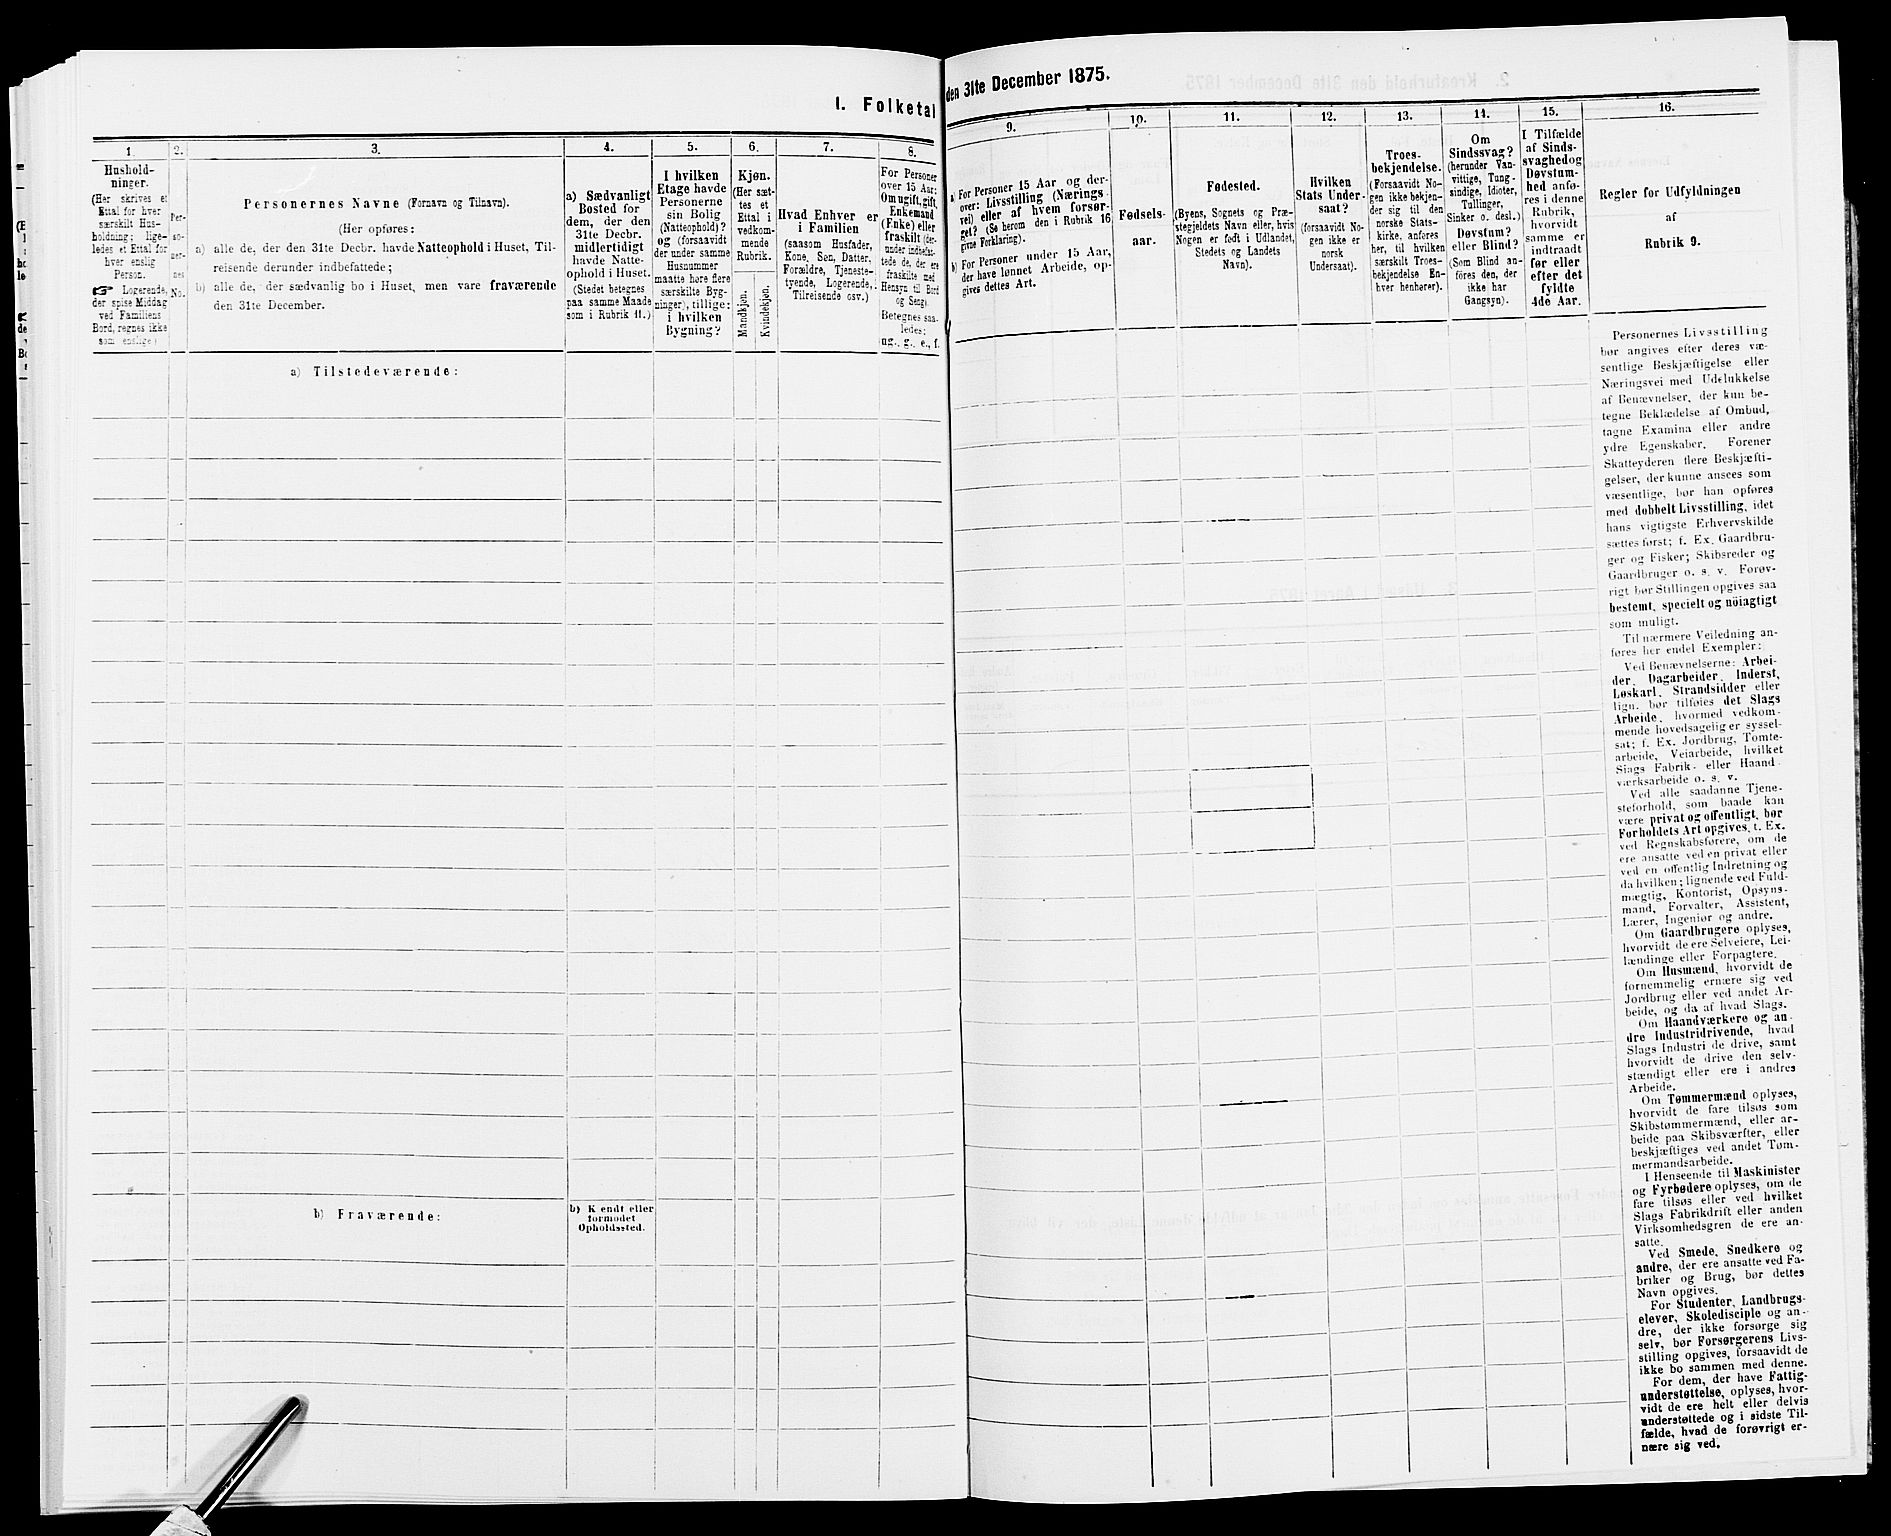 I. Folketal
den 31te December 1875.
1.
Hushold-
ninger.
(Her skrives et
Ettal for hver
særskilt Hus-
holdning; lige-
ledes et Ettal for
hver enslig
Person.
☞ Logerende,
der spise Middag
ved Familiens
Bord, regnes ikke
som enslige.)
2.
Per-
so-
ner-
nes
No.
3.
Personernes Navne (Fornavn og Tilnavn).
(Her opføres:
a) alle de, der den 31te Decbr. havde Natteophold i Huset, Til-
reisende derunder indbefattede;
b) alle de, der sædvanlig bo i Huset, men vare fraværende
den 31te December.
4.
a) Sædvanligt
Bosted for
dem, der den
31te Decbr.
midlertidigt
havde Natte-
ophold i Huset.
(Stedet betegnes
paa samme Maade
som i Rubrik 11.)
5.
I hvilken
Etage havde
Personerne
sin Bolig
(Natteophold)?
og (forsaavidt
der under samme
Husnummer
maatte høre flere
særskilte Byg-
ninger), tillige:
i hvilken
Bygning?
6.
Kjøn.
(Her sæt-
tes et
Ettal i
vedkom-
mende
Rubrik.
Mandkjøn.
Kvindekjøn.
7.
Hvad Enhver er
i Familien
(saasom Husfader,
Kone, Søn, Datter,
Forældre, Tjeneste-
tyende, Logerende,
Tilreisende osv.)
8.
For Personer
over 15 Aar:
Om ugift, gift,
Enkemand
(Enke) eller
fraskilt (der-
under indbefat-
tede de, der ere
fraskilte med
Hensyn til Bord
og Seng)
Betegnes saa-
ledes:
ug., g., e., f.
9.
a) For Personer 15 Aar og der-
over: Livsstilling (Nærings-
vei) eller af hvem forsør-
get? (Se herom den i Rubrik 16
givne Forklaring).
b) For Personer under 15 Aar,
der have lønnet Arbeide, op-
gives dettes Art.
10.
Fødsels-
aar.
11.
Fødested.
(Byens, Sognets og Præ-
stegjeldets Navn eller, hvis
Nogen er født i Udlandet,
Stedets og Landets
Navn).
12.
Hvilken
Stats Under-
saat?
(forsaavidt No-
gen ikke er
norsk
Undersaat).
13.
Troes-
bekjendelse.
(Forsaavidt No-
gen ikke bekjen-
der sig til den
norske Stats-
kirke, anføres
her, til hvilken
særskilt Troes-
bekjendelse En-
hver henhører).
14.
Om
Sindssvag?
(herunder Van-
vittige, Tung-
sindige, Idioter,
Tullinger,
Sinker o. desl.)
Døvstum?
eller Blind?
(Som Blind an-
føres den, der
ikke har
Gangsyn).
15.
I Tilfælde
af Sinds-
svaghed og
Døvstum-
hed anfø-
res i denne
Rubrik,
hvorvidt
samme er
indtraadt
før eller
efter det
fyldte
4de Aar.
16.
Regler for Udfyldningen
af
Rubrik 9.
a) Tilstedeværende:
b) Fraværende:
b) Kendt eller
formodet
Opholdssted.
Personernes Livsstilling
bør angives efter deres væ-
sentlige Beskjæftigelse eller
Næringsvei med Udelukkelse
af Benævnelser, der kun be-
tegne Beklædelse af Ombud,
tagne Examina eller andre
ydre Egenskaber. Forener
Skatteyderen flere Beskjæfti-
gelser, der kunne ansees som
væsentlige, bør han opføres
med dobbelt Livsstilling, idet
hans vigtigste Erhvervskilde
sættes først; f. Ex. Gaardbru-
ger og Fisker; Skibsreder og
Gaardbruger o. s. v. Forøv-
rigt bør Stillingen opgives saa
bestemt, specielt og nöiagtigt
som muligt.
Til nærmere Veiledning an-
føres her endel Exempler:
Ved Benævnelserne: Arbei-
der, Dagarbeider, Inderst,
Løskarl, Strandsidder eller
lign. bør tilføies det Slags
Arbeide, hvormed vedkom-
mende hovedsagelig er syssel-
sat; f. Ex. Jordbrug, Tomte-
arbeide, Veiarbeide, hvilket
Slags Fabrik- eller Haand-
værksarbeide o. s. v.
Ved alle saadanne Tjene-
steforhold, som baade kan
være privat og offentligt, bør
Forholdets Art opgives, t. Ex.
ved Regnskabsførere, om de
ere ansatte ved en privat eller
ved en offentlig Indretning og
da hvilken; lignende ved Fuld-
mægtig, Kontorist, Opsyns-
mand, Forvalter, Assistent,
Lærer, Ingeniør og andre.
Om Gaardbrugere oplyses,
hvorvidt de ere Selveiere, Lei-
lændinge eller Forpagtere.
Om Husmænd, hvorvidt de
fornemmelig ernære sig ved
Jordbrug eller ved andet Ar-
beide, og da af hvad Slags.
Om Haandværkere og an-
dre Industridrivende, hvad
Slags Industri de drive, samt
hvorvidt de drive den selv-
stændigt eller ere i andres
Arbeide.
Om Tømmermænd oplyses,
hvorvidt de fare tilsøs som
Skibstømmermænd, eller ar-
beide paa Skibsværfter, eller
beskjæftiges ved andet Tøm-
mermandsarbeide.
I Henseende til Maskinister
og Fyrbødere oplyses, om de
fare tilsøs eller ved hvilket
Slags Fabrikdrift eller anden
Virksomhedsgren de ere an-
satte.
Ved Smede, Snedkere og
andre, der ere ansatte ved Fa-
briker og Brug, bør dettes
Navn opgives.
For Studenter, Landbrugs-
elever, Skoledisciple og an-
dre, der ikke forsørge sig
selv, bør Forsørgerens Livs-
stilling opgives, forsaavidt de
ikke bo sammen med denne.
For dem, der have Fattig-
understøttelse, oplyses, hvor-
vidt de ere helt eller delvis
understøttede og i sidste Til-
fælde, hvad de forøvrigt er-
nære sig ved.